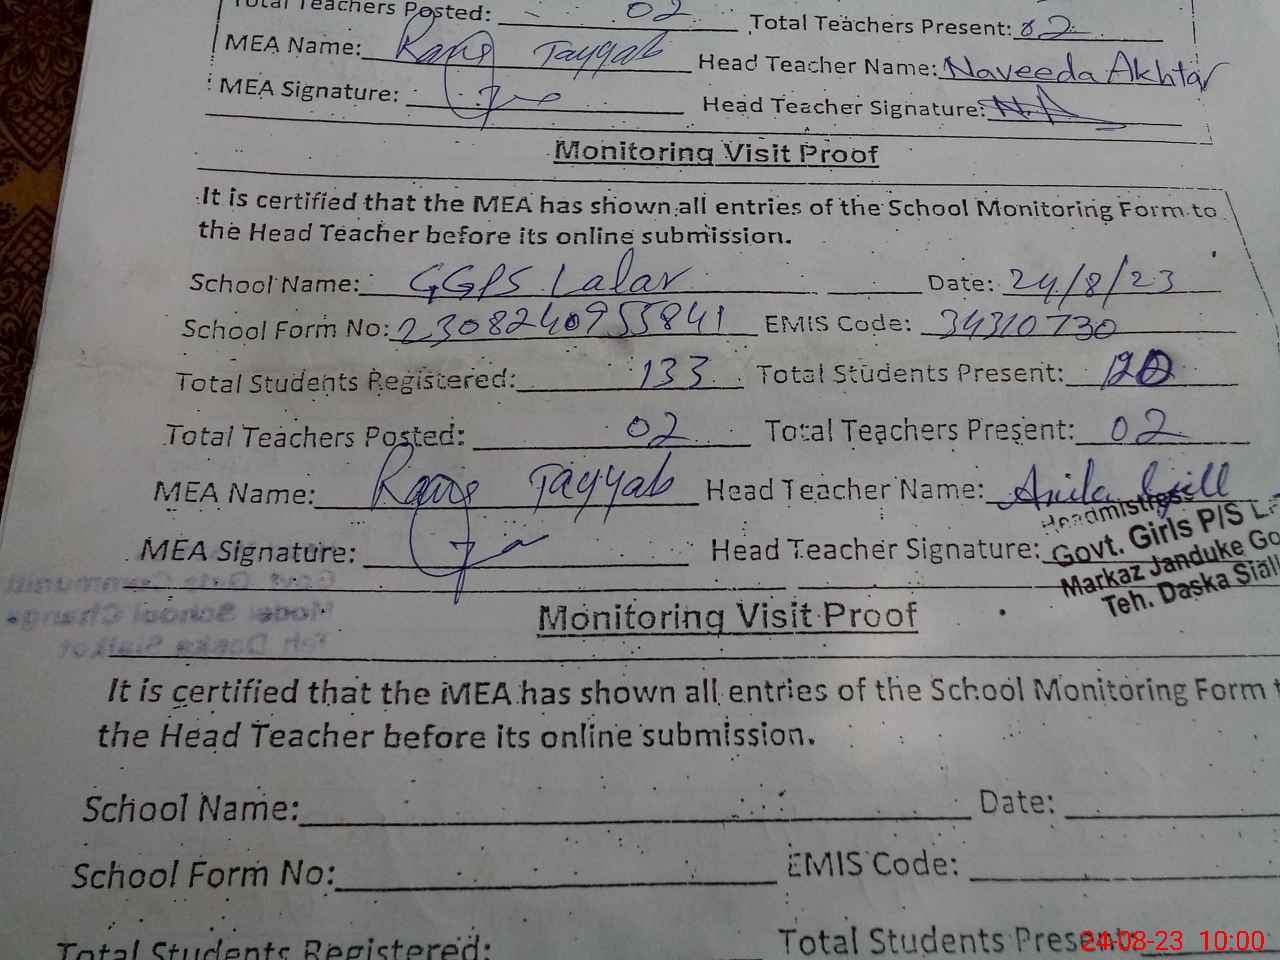 Total Teachers Posted: 02 Total Teachers Present: 02
MEA Name: Tayyab Head Teacher Name: Naveeda Akhtar
MEA Signature: Head Teacher Signature: NA
Monitoring Visit Proof
It is certified that the MEA has shown all entries of the School Monitoring Form to
the Head Teacher before its online submission.
School Name: GGPS Lalar Date: 24/8/23
School Form No: 2308240955841 EMIS Code: 34310730
Total Students Registered: 133 Total Students Present: 120
Total Teachers Posted: 02 Total Teachers Present: 02
MEA Name: Tayyab Head Teacher Name: Anila Gill
MEA Signature: Head Teacher Signature:
Headmistress
Govt. Girls P/S
Markaz Janduke
Teh. Daska
Monitoring Visit Proof
It is certified that the MEA has shown all entries of the School Monitoring Form
the Head Teacher before its online submission.
School Name: Date:
School Form No: EMIS Code:
Total Students Registered: Total Students Present:
24-08-23 10:00